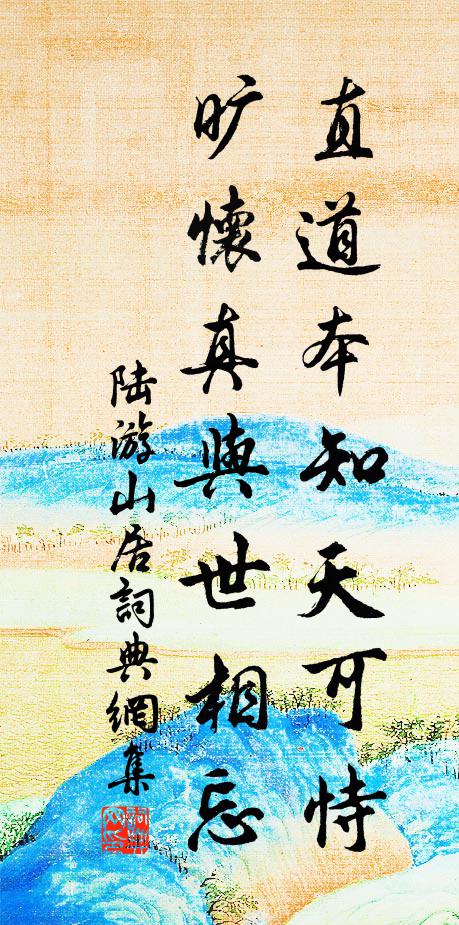 直道本知天可恃
旷懷真與世相忘
陆游山居詞典網集